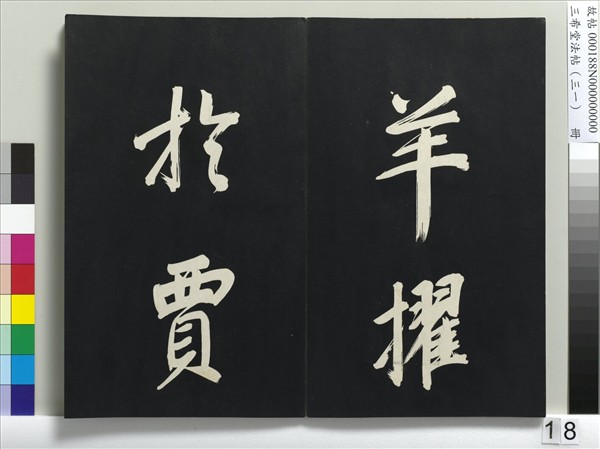 羊擢
於賈
故帖 000188N000000000
三希堂法帖（三一） 冊
18